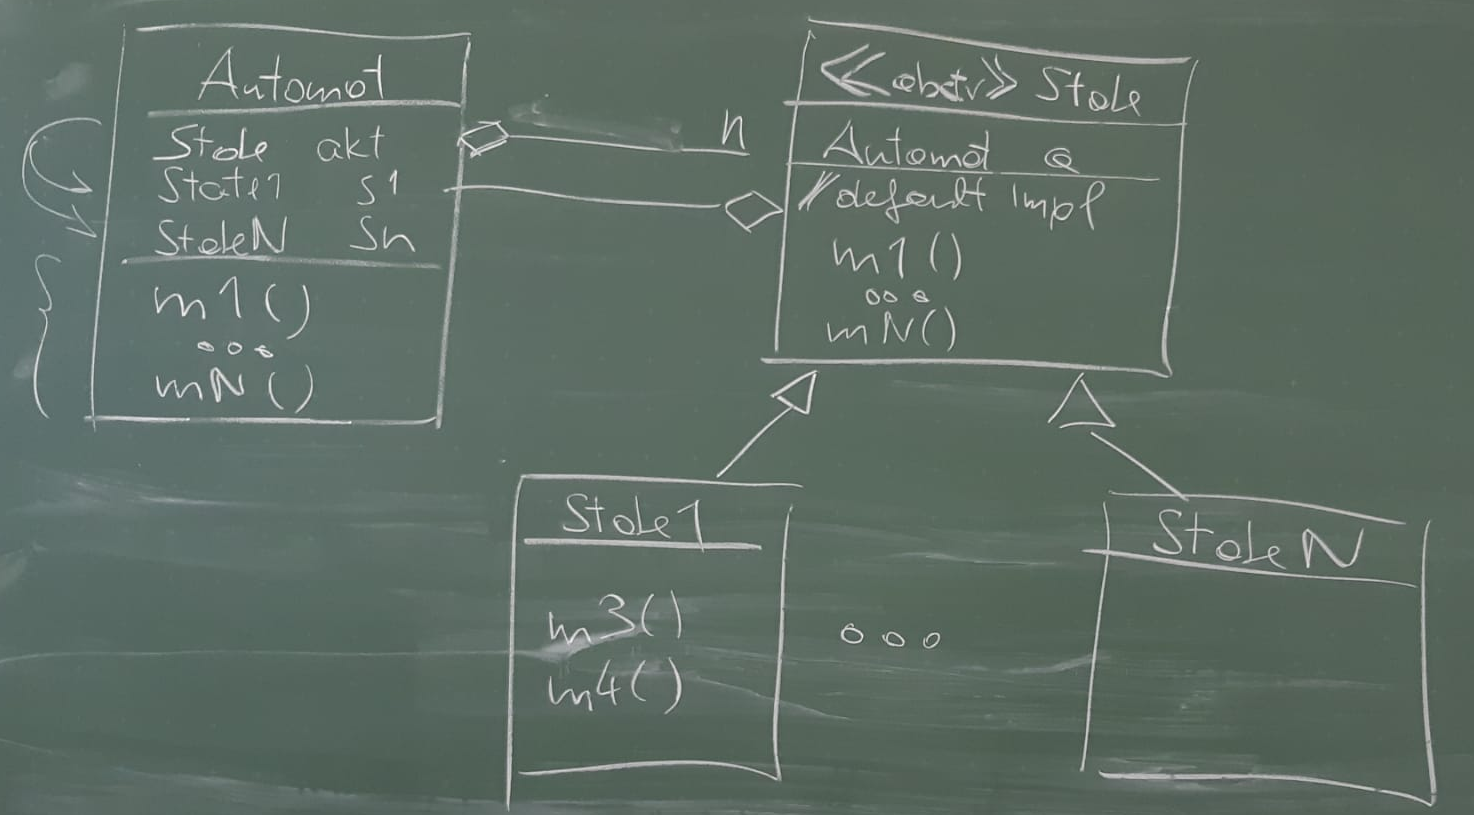 Automat
State akt
State1 S1
StateN Sn
m1()
...
mN()
n
<<abstr>> State
Automat a
// default Impl
m1()
...
mN()
State1
m3()
m4()
...
StateN